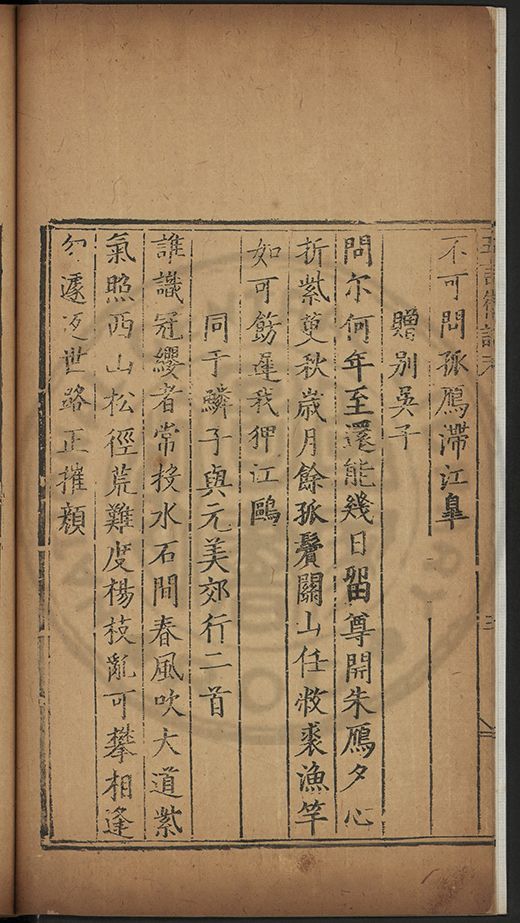 不可問孤鴈滯江皐
贈別吳子
問尔何年至還能幾日留尊開朱鴈夕心
折紫萸秋歲月餘孤鬢關山任敝裘漁竿
如可飭遲我狎江鷗
同于鱗子與元美郊行二首
誰識冠纓者常投水石間春風吹大道紫
氣照西山松徑荒難度楊枝亂可攀相逢
勿遽返世路正摧顏